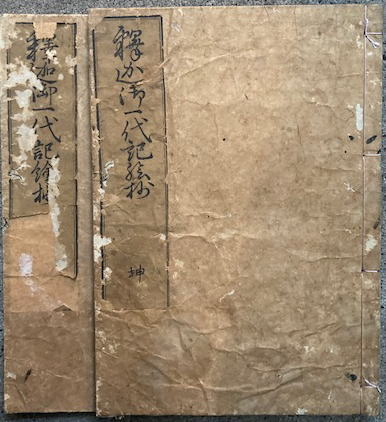 釋迦御一代記絵抄
坤
釋迦御一代記